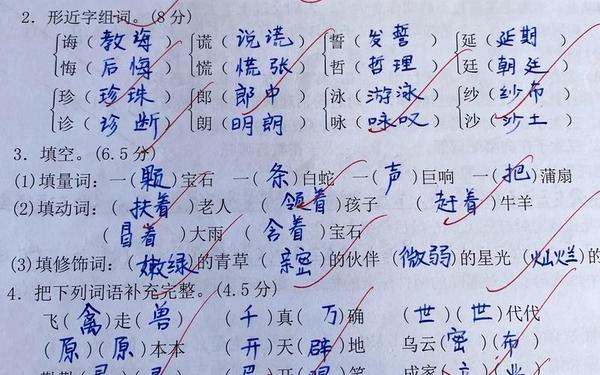 2. 形近字组词。(8分)
诲（教诲） 谎（说谎） 誓（发誓） 延（延期）
悔（后悔） 慌（慌张） 哲（哲理） 廷（朝廷）
珍（珍珠） 郎（郎中） 泳（游泳） 纱（纱布）
诊（诊断） 朗（明朗） 咏（咏叹） 沙（沙土）
3. 填空。(6.5分)
(1)填量词：一（颗）宝石 一（条）白蛇 一（声）巨响 一（把）蒲扇
(2)填动词：（扶着）老人 （领着）孩子 （赶着）牛羊
（冒着）大雨 （含着）宝石
(3)填修饰词：（嫩绿）的青草（亲密）的伙伴（微弱）的星光（灿烂）的
4. 把下列词语补充完整。(4.5分)
飞（禽）走（兽） （千）真（万）确 （世）（世）代代
（原）（原）本本 （开）天（辟）地 乌云（密）（布）